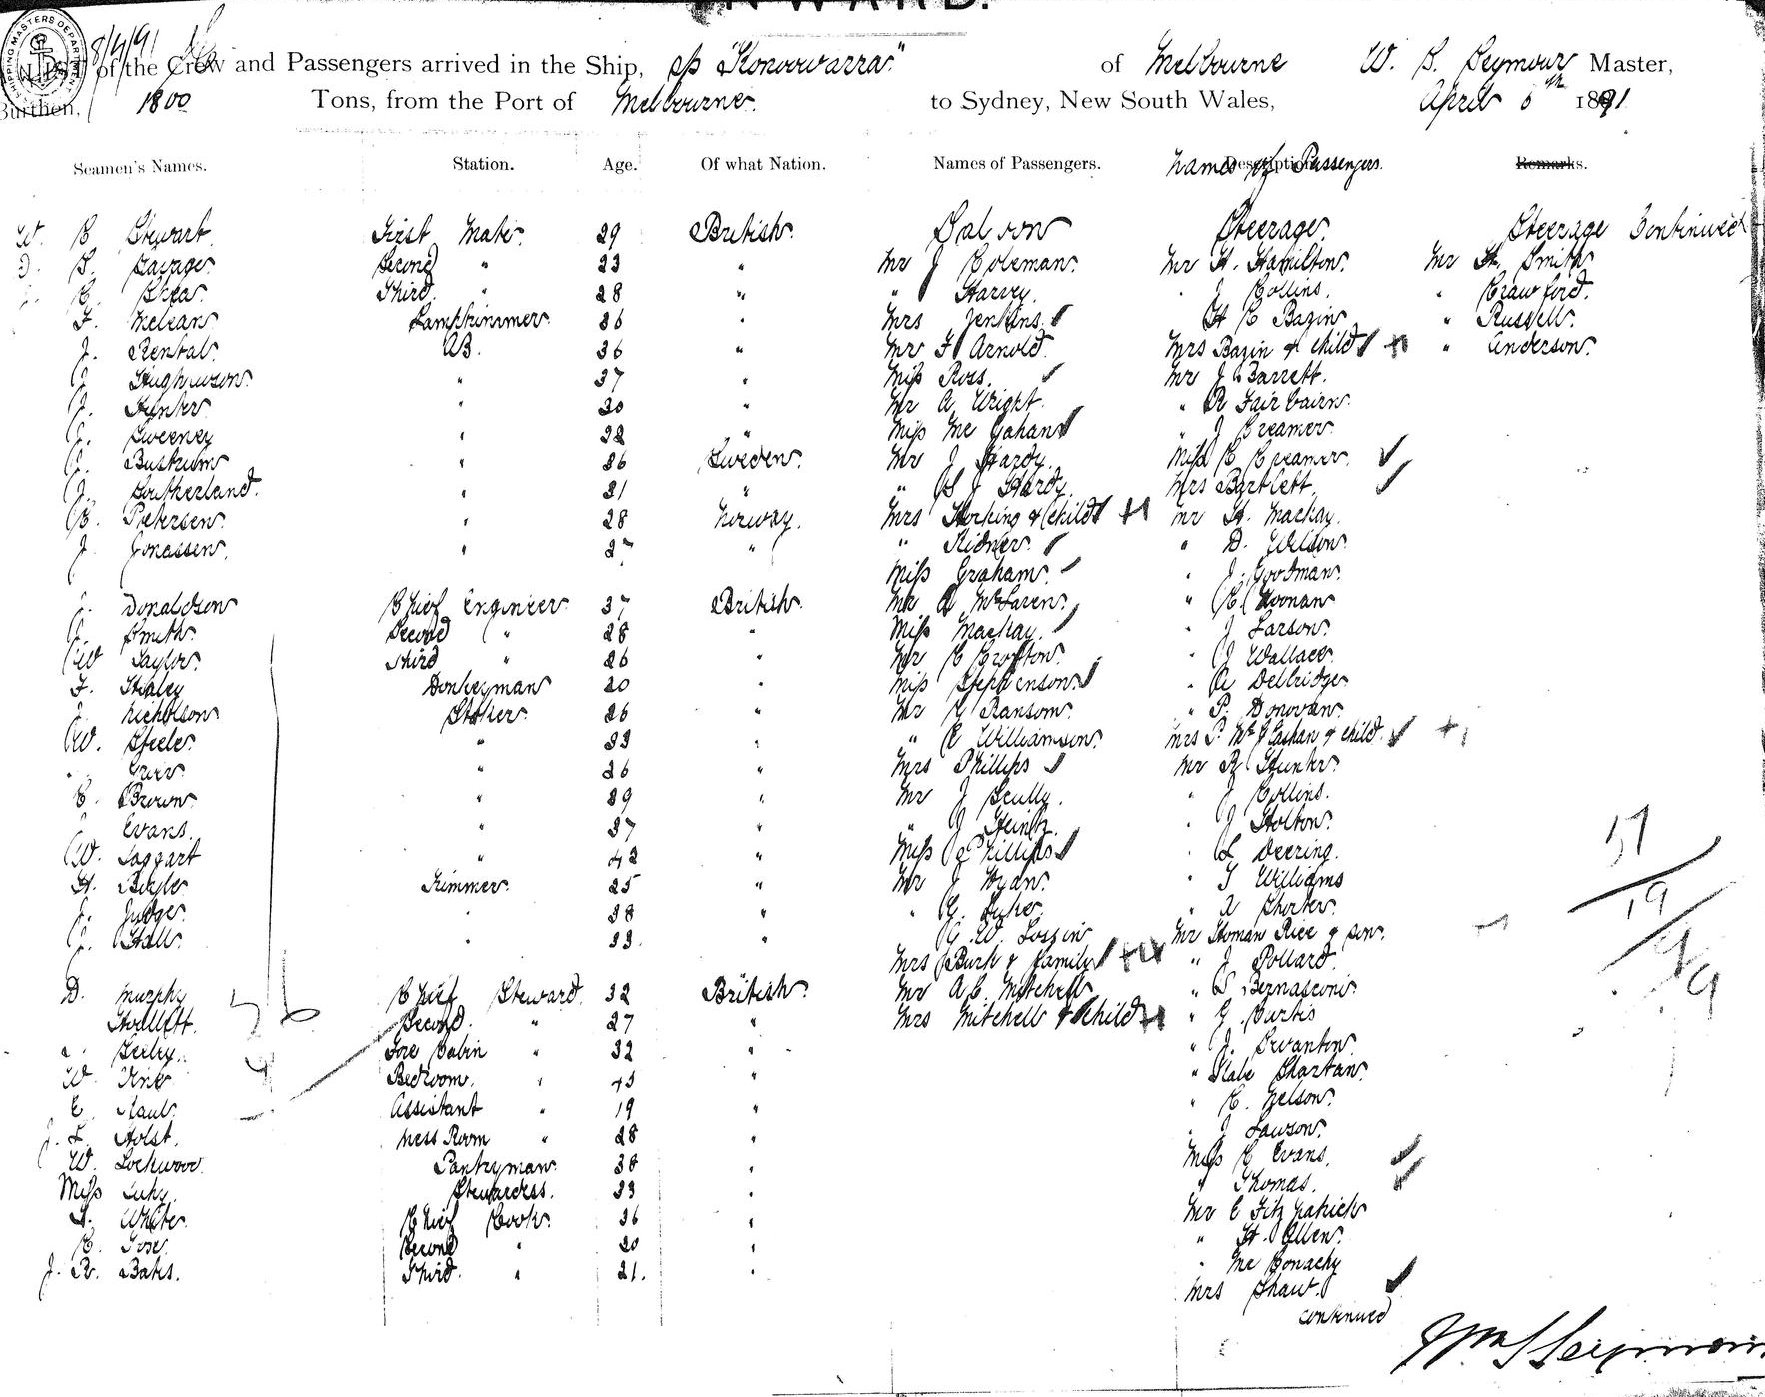 INWARD.
8/4/91
A LIST of the Crew and Passengers arrived in the Ship, s/s "Konoowarra" of Melbourne W. S. Seymour Master,
Burthen, 1800 Tons, from the Port of Melbourne. to Sydney, New South Wales, April 6th 1891
Seamen's Names. Station. Age. Of what Nation. Names of Passengers. Names of Passengers. Remarks.
W. Stewart. First Mate. 29 British. Saloon Steerage. Steerage Continued
S. Savage. Second " 23 " Mr J Coleman. Mr H. Hamilton. Mr H. Smith
C. Shea. Third. " 28 " " Harvey. " J Collins. " Crawford.
F. McLean. Lamptrimmer. 36 " Mrs Jenkins. H C Bazin " Russell.
J. Rental. AB. 36 " Mr F Arnold. Mrs Bazin & child + " Anderson.
J. Hughuson. " 37 " Miss Ross. Mr J Barrett.
J. Hunter. " 30 " Mr A Wright. " R Fairbairn.
J. Sweeney " " Miss McGahan " J Creamer.
J. Bustrum " 36 Sweden. Mr J Hardy. Miss C Creamer.
J. Southerland. " 31 " " S J Hardy. Mrs Bartlett.
C. Petersen. " 28 Norway. Mrs Horking & child +1 Mr H. Mackay.
J. Jonassen. " 27 " " Ridner. " D. Wilson.
Miss Graham. " J. Goodman.
J. Donaldson Chief Engineer 37 British. Mr A McLaren. " C Noonan
J. Smith. Second " 28 " Miss Mackay. " J Larson.
W Taylor. Third " 26 " Mr C Crofton. " J Wallace.
F. Healey Donkeyman 30 " Miss Stephenson. " A Delbridge
J. Nicholson Stoker. 26 " Mr G Ransom. " P. Donovan.
W. Steele. " 33 " " E Williamson. Mrs P. McGlachan & child. +1
Grier. " 26 " Mrs Phillips Mr R Hunter.
C. Brown. " 39 " Mr J Scully. " J Collins.
Evans. " 37 " " J Heintz. " J Holton.
W. Taggart " 42 " Miss Phillips " L Deering.
H. Boyle. Trimmer. 25 " Mr J Hyan. " T Williams
J. Judge. " 38 " " G. Luke. " A Shorter.
J. Hall. " 33. " G. W. Lossin Mr Homan Rice & son.
Mrs Burk & family +4 " J Pollard.
D. Murphy Chief Steward. 32 British. Mr A C. Mitchell " S Bernasconi.
Hollett. Second. " 27 " Mrs Mitchell & child +1 " G Curtis
Seiley. Fore Cabin " 32 " " J. Swanton.
W. Vine Bedroom. " 43 " " Slabe Shartan.
E. Maul. Assistant " 19 " " C. Nelson.
J. L. Holst. Mess Room " 28 " " J Lawson.
W. Lockwood. Pantryman. 38 " Miss C Evans.
Miss Luky. Stewardess. 33 " " Thomas.
White. Chief Cook. 36 " Mr C Fitzpatrick
C. Gose. Second " 20 " " H. Allen.
J. R. Bates. Third. " 21. " " McConachy
Mrs Shaw.
continued
Wm S Seymour